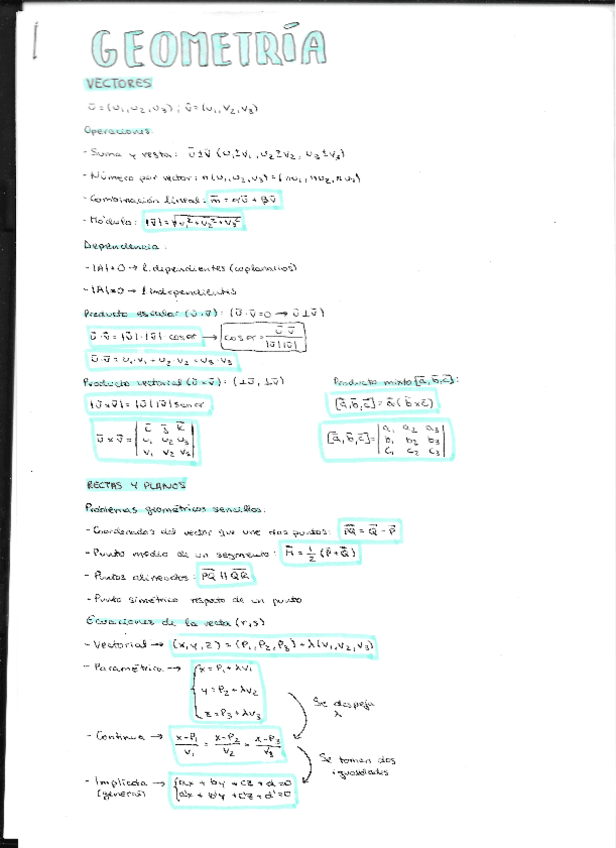 GEOMETRÍA
VECTORES
ū = (u₁, u₂, u₃) ; v̄ = (v₁, v₂, v₃)
Operaciones:
- Suma y resta: ū ± v̄ (u₁±v₁, u₂±v₂, u₃±v₃)
- Número por vector: n(u₁, u₂, u₃) = (nu₁, nu₂, nu₃)
- Combinación lineal: m̄ = αū + βv̄
- Módulo: |v̄| = √v₁² + v₂² + v₃²
Dependencia:
- |A| = 0 → l. dependientes (coplanarios)
- |A| ≠ 0 → l independientes
Producto escalar (ū·v̄): (ū·v̄ = 0 → ū ⊥ v̄)
ū·v̄ = |ū|·|v̄| cos α → cos α = ū v̄ / |ū||v̄|
ū·v̄ = u₁·v₁ + u₂·v₂ + u₃·v₃
Producto vectorial (ū × v̄): (⊥ū, ⊥v̄)
|ū × v̄| = |ū||v̄| sen α
ū × v̄ = | ī j̄ k̄ |
u₁ u₂ u₃
v₁ v₂ v₃
Producto mixto [ā, b̄, c̄]:
[ā, b̄, c̄] = ā (b̄ × c̄)
[ā, b̄, c̄] = | a₁ a₂ a₃ |
b₁ b₂ b₃
c₁ c₂ c₃
RECTAS Y PLANOS
Problemas geométricos sencillos:
- Coordenadas del vector que une dos puntos: P̄Q̄ = Q̄ - P̄
- Punto medio de un segmento: M̄ = 1/2 (P̄ + Q̄)
- Puntos alineados: P̄Q̄ || Q̄R̄
- Punto simétrico respecto de un punto
Ecuaciones de la recta (r, s)
- Vectorial → (x, y, z) = (P₁, P₂, P₃) + λ(v₁, v₂, v₃)
- Paramétrica → { x = P₁ + λv₁
y = P₂ + λv₂
z = P₃ + λv₃
Se despeja
λ
- Continua → x-P₁/v₁ = x-P₂/v₂ = x-P₃/v₃
Se toman dos
igualdades
- Implícita → { ax + by + cz + d = 0
(general) a'x + b'y + c'z + d' = 0